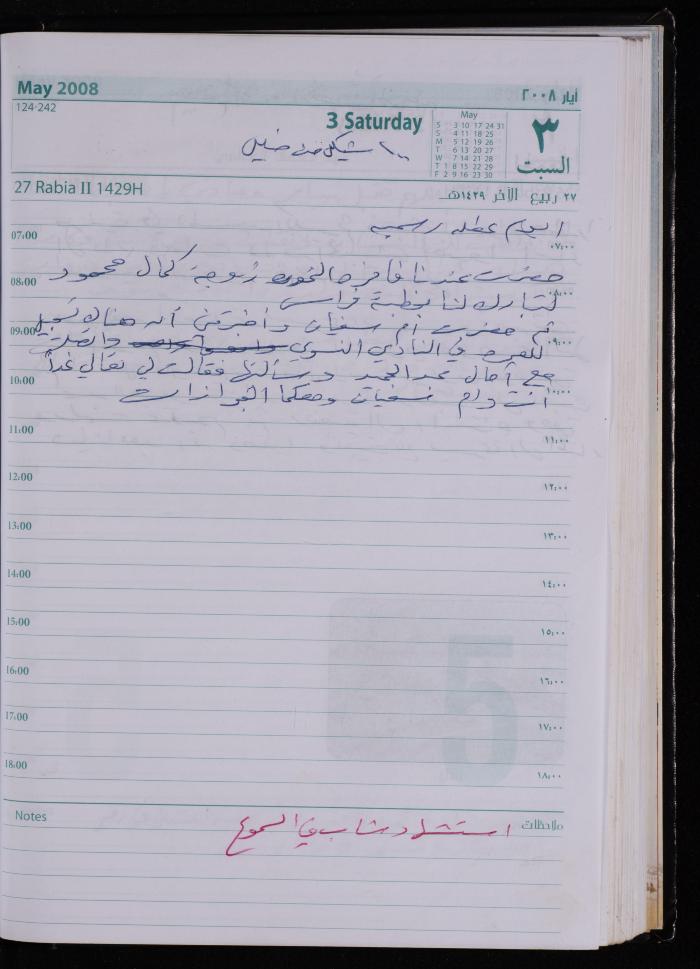 May 2008
أيار ٢٠٠٨
124-242
3 Saturday
May
S 3 10 17 24 31
S 4 11 18 25
M 5 12 19 26
T 6 13 20 27
W 7 14 21 28
T 1 8 15 22 29
F 2 9 16 23 30
٣
السبت
١٠٠ شيكل من
27 Rabia II 1429H
٢٧ ربيع الآخر ١٤٢٩هـ
اليوم عطلة رسمية
07:00
٠٧:٠٠
حضرت عندنا زوجة كمال محمود
08:00
٠٨:٠٠
لتبارك لنا بخطبة فراس
ثم حضرت أم سفيان وأخبرتني أنه هناك تسجيل
09:00
٠٩:٠٠
للعمرة في النادي النسوي واتصلت
مع آمال عبد الحميد وسألتها فقالت لي تعالي غداً
10:00
١٠:٠٠
أنت وأم سفيان ومعكما الجوازات
11:00
١١:٠٠
12:00
١٢:٠٠
13:00
١٣:٠٠
14:00
١٤:٠٠
15:00
١٥:٠٠
5
16:00
١٦:٠٠
17:00
١٧:٠٠
18:00
١٨:٠٠
Notes
ملاحظات
استشهاد شاب في السموع